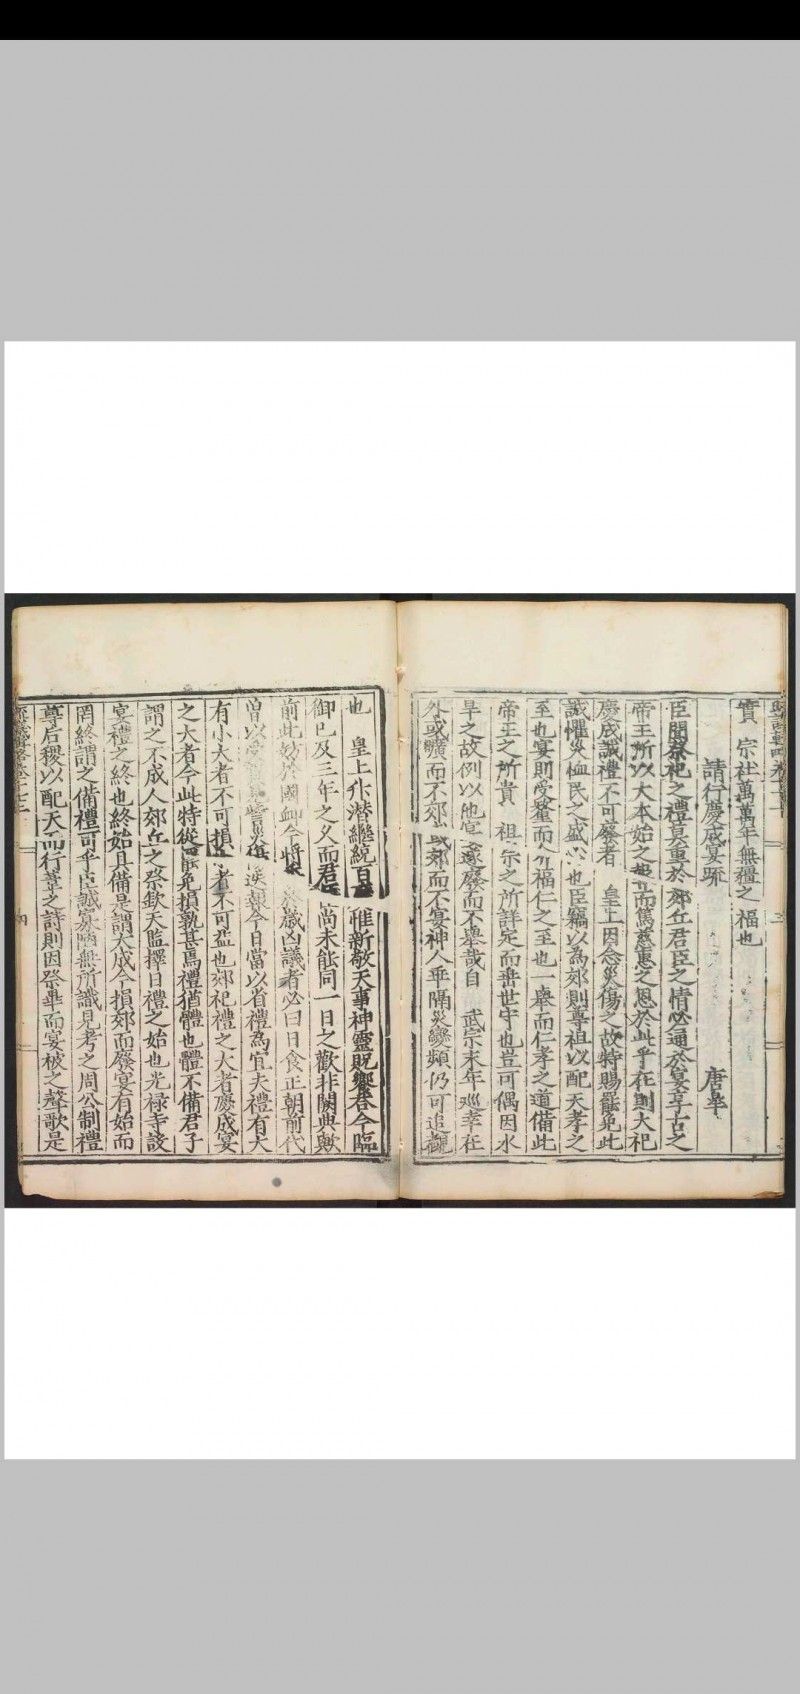 實 宗社萬萬年無疆之 福也
請行慶成宴疏 唐皐
臣聞祭祀之禮莫重於 郊丘君臣之情必通於宴享古之
帝王所以大本始之 而篤慈惠之恩於此乎在則大祀
慶成議禮不可廢者 皇上因念災傷之故特賜罷免此
誠懼災恤民之盛心也臣竊以為郊則尊祖以配天孝之
至也宴則受釐而 福仁之至也一舉而仁孝之道備此
帝王之所貴 祖宗之所詳定而垂世守也豈可偶因水
旱之故例以他宴遂廢而不舉哉自 武宗末年巡幸在
外或曠而不郊或郊而不宴神人乖隔災變頻仍可追觀
也 皇上升潜繼統百 惟新敬天事神靈貺響荅今臨
御已及三年之久而君 尚未能同一日之歡非闕典歟
前此妨於國衈今將 歲凶議者必曰日食正朝前代
曾以 報今日當以省禮為宜夫禮有大
有小大者不可損 者不可益也郊祀禮之大者慶成宴
之大者今此特從罷免損孰甚焉禮猶體也體不備君子
謂之不成人郊丘之祭欽天監擇日禮之始也光禄寺設
宴禮之終也終始具備是謂大成今損郊而廢宴有始而
罔終謂之備禮可乎臣誠寡陋無所識見考之周公制禮
尊后稷以配天而行葦之詩則因祭畢而宴被之聲歌是